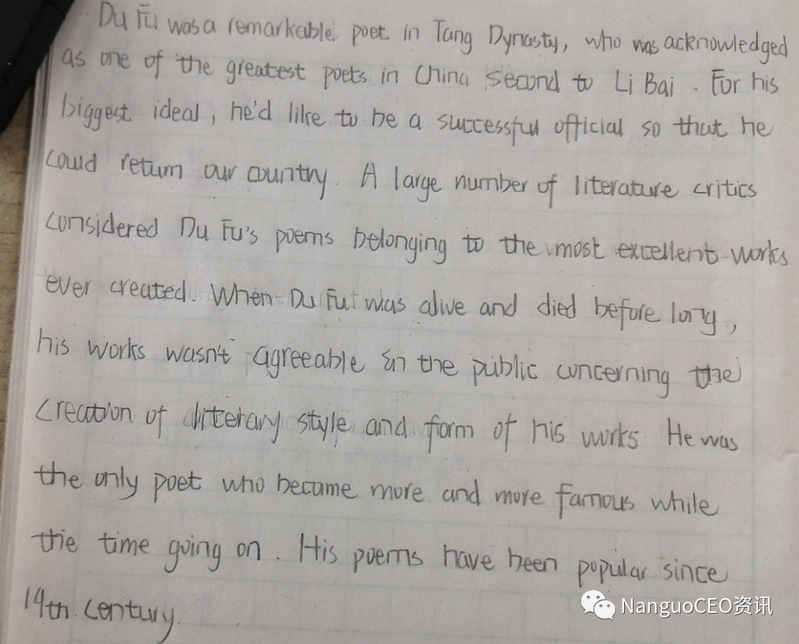 Du Fu was a remarkable poet in Tang Dynasty, who was acknowledged
as one of the greatest poets in China second to Li Bai. For his
biggest ideal, he'd like to be a successful official so that he
could return our country. A large number of literature critics
considered Du Fu's poems belonging to the most excellent works
ever created. When Du Fu was alive and died before long,
his works wasn't agreeable in the public concerning the
creation of literary style and form of his works. He was
the only poet who became more and more famous while
the time going on. His poems have been popular since
19th century.
NanguoCEO资讯